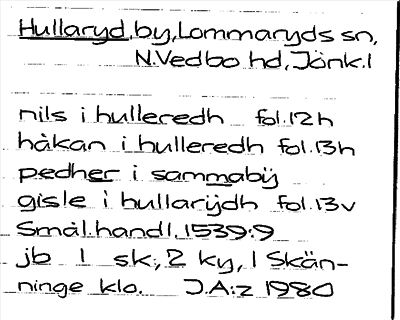 Hullaryd, by, Lommaryds sn,
N. Vedbo hd, Jönk. l
nils i hulleredh fol. 12h
håkan i hulleredh fol. 13h
pedher i sammabÿ
gisle i hullarÿdh fol. 13v
Smål. handl. 1539:9
jb 1 sk:, 2 ky, 1 Skän-
ninge klo. J.A:z 1980